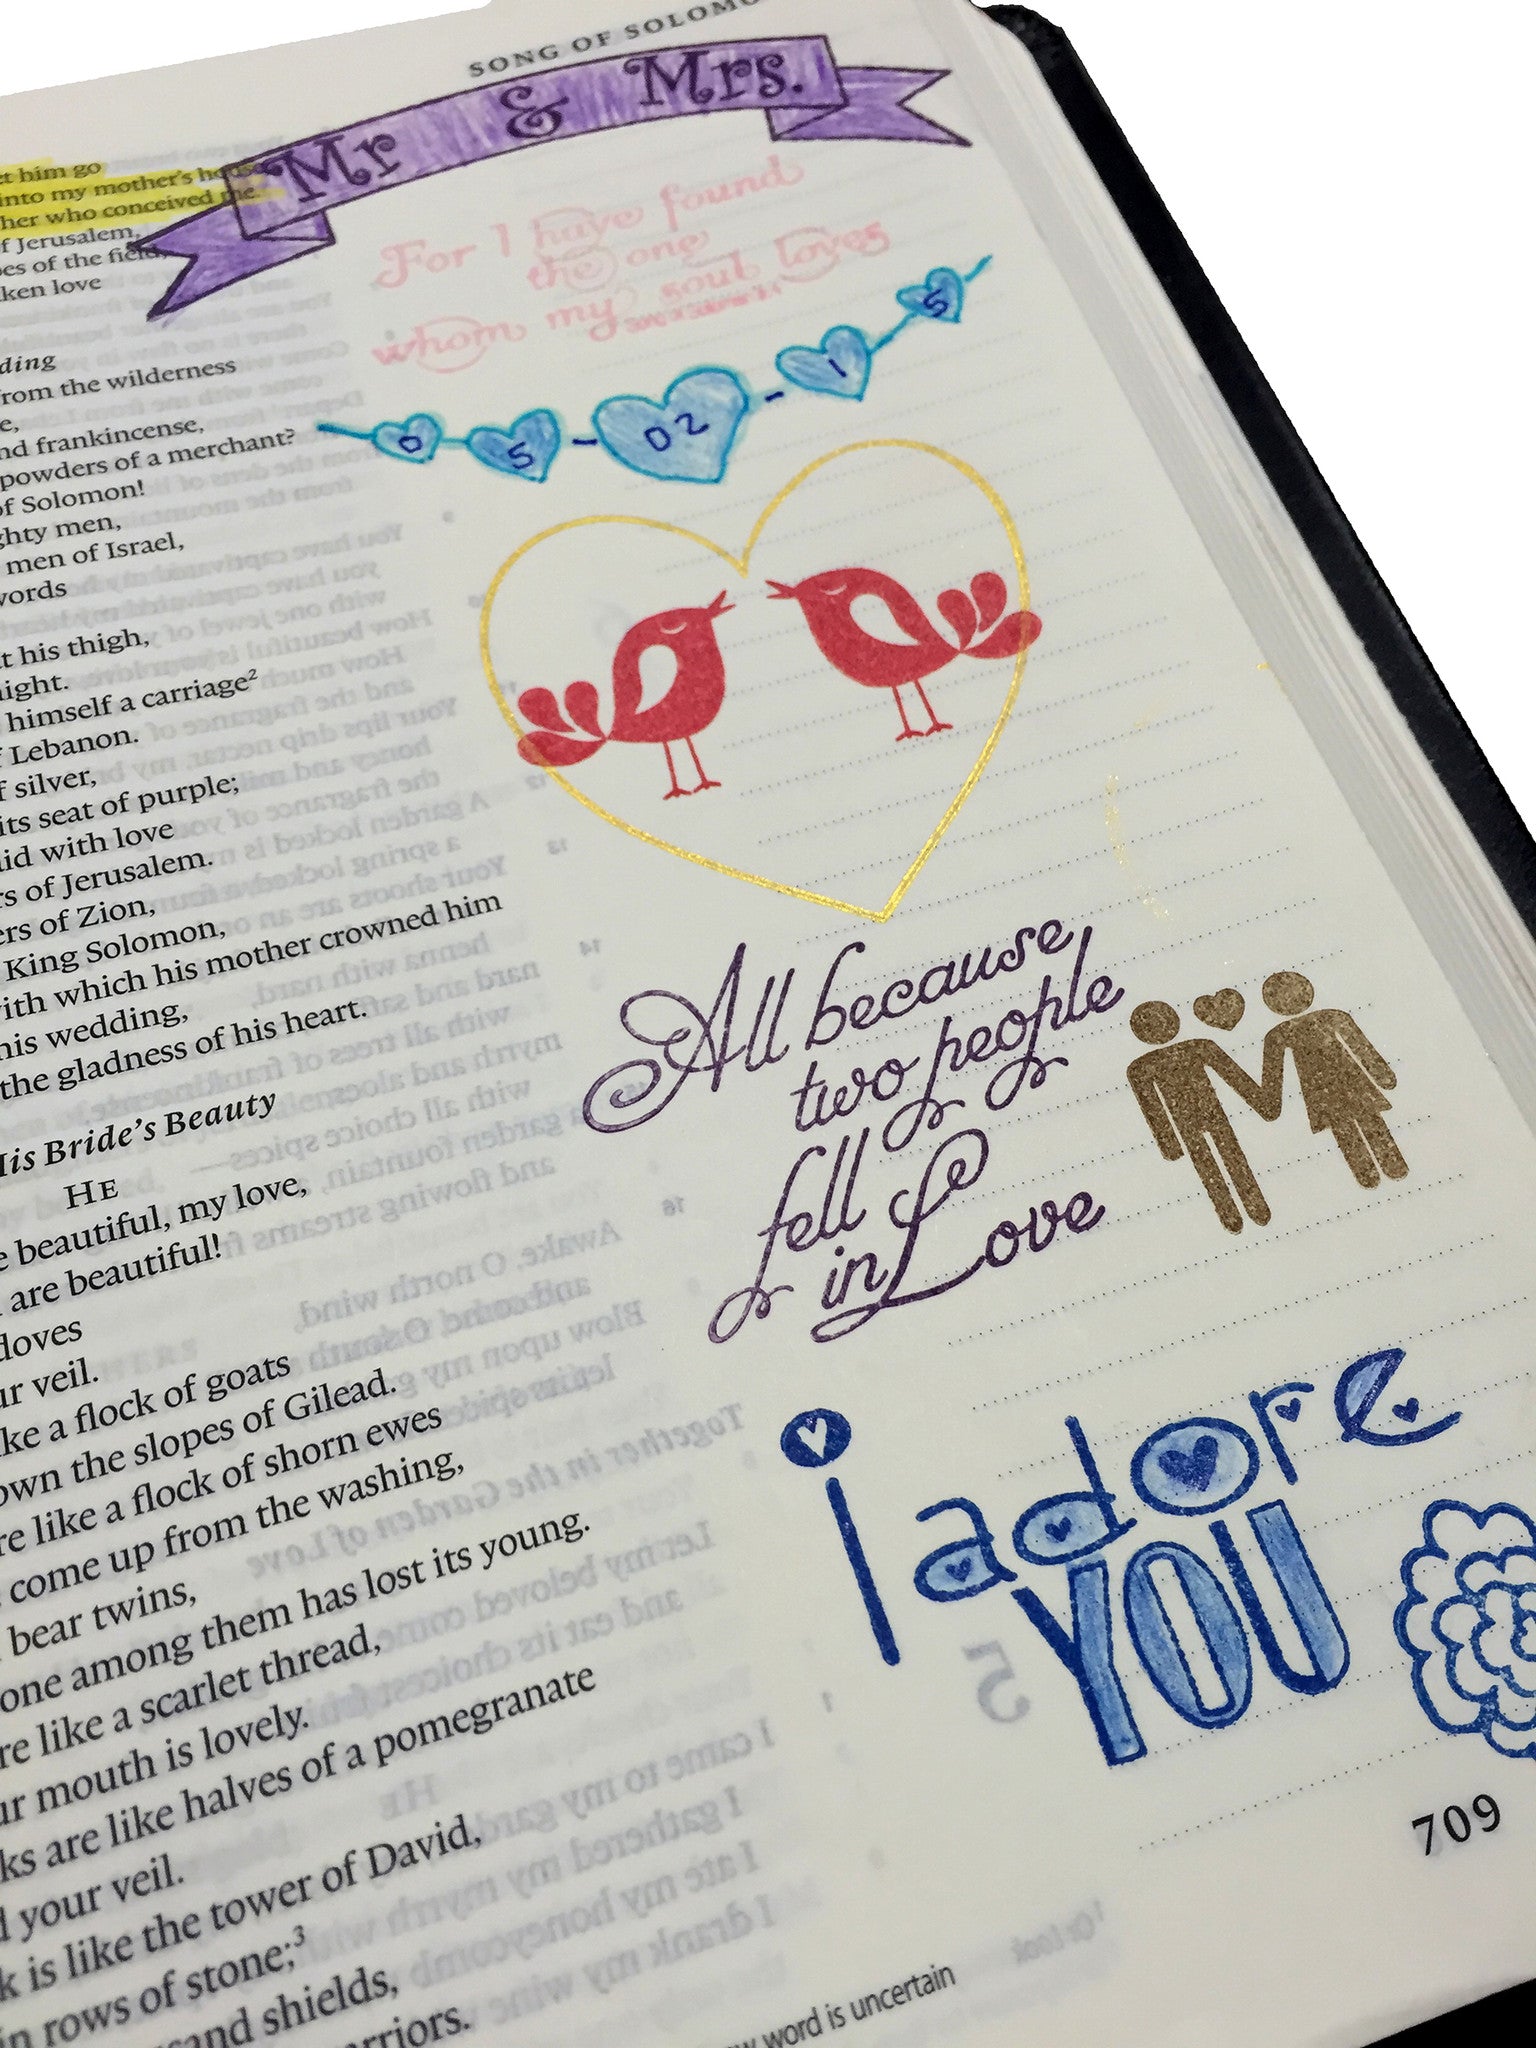 SONG OF SOLOMO
Mr & Mrs.
For I have found
the one
whom my soul loves
0 5 - 02 - 1 5
All because
two people
fell
in Love
i adore
YOU
5
709
et him go
into my mother's house
her who conceived me.
f Jerusalem,
oes of the field,
ken love
ding
rom the wilderness
e,
nd frankincense,
powders of a merchant?
of Solomon!
ghty men,
men of Israel,
words
t his thigh,
night.
himself a carriage²
f Lebanon.
f silver,
its seat of purple;
aid with love
rs of Jerusalem.
ers of Zion,
King Solomon,
with which his mother crowned him
his wedding,
the gladness of his heart.
His Bride's Beauty
HE
e beautiful, my love,
are beautiful!
doves
ur veil.
ke a flock of goats
own the slopes of Gilead.
re like a flock of shorn ewes
come up from the washing,
bear twins,
one among them has lost its young.
re like a scarlet thread,
ur mouth is lovely.
ks are like halves of a pomegranate
d your veil.
k is like the tower of David,
in rows of stone;³
sand shields,
arriors.
w word is uncertain